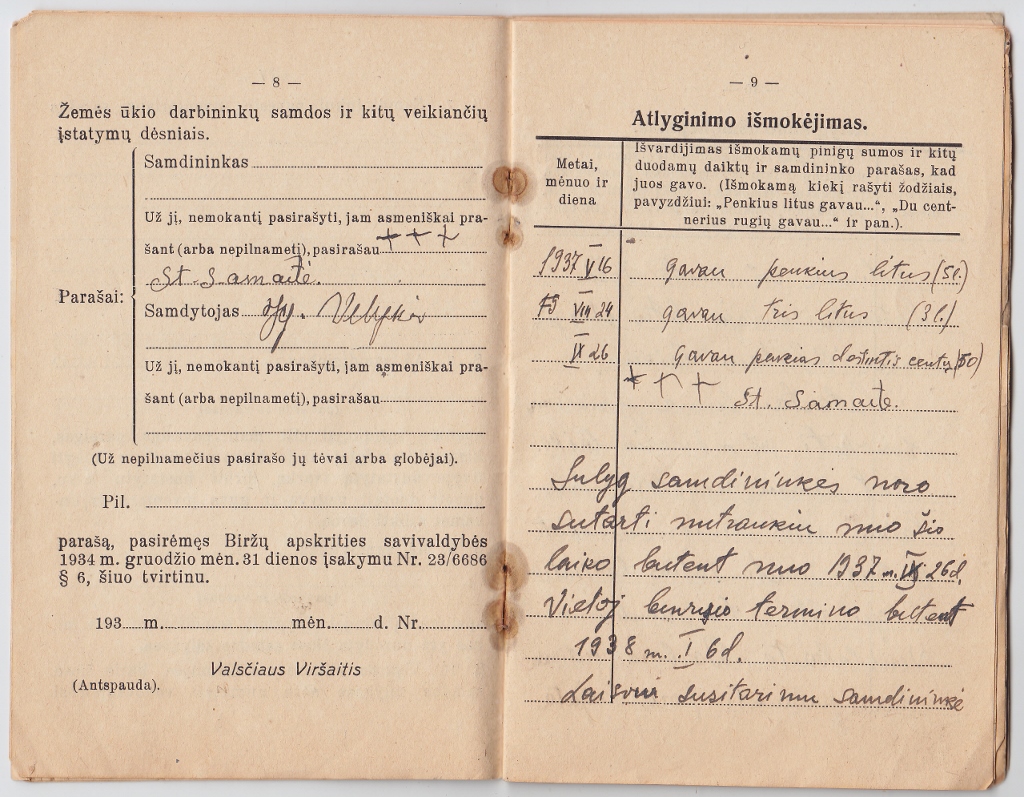 — 8 —
Žemės ūkio darbininkų samdos ir kitų veikiančių
įstatymų dėsniais.
Parašai:
Samdininkas
Už jį, nemokantį pasirašyti, jam asmeniškai pra-
šant (arba nepilnametį), pasirašau + + +
St. Samaitė.
Samdytojas
Už jį, nemokantį pasirašyti, jam asmeniškai pra-
šant (arba nepilnametį), pasirašau
(Už nepilnamečius pasirašo jų tėvai arba globėjai).
Pil.
parašą, pasirėmęs Biržų apskrities savivaldybės
1934 m. gruodžio mėn. 31 dienos įsakymu Nr. 23/6686
§ 6, šiuo tvirtinu.
193 m. mėn. d. Nr.
Valsčiaus Viršaitis
(Antspauda).
— 9 —
Atlyginimo išmokėjimas.
Metai,
mėnuo ir
diena
Išvardijimas išmokamų pinigų sumos ir kitų
duodamų daiktų ir samdininko parašas, kad
juos gavo. (Išmokamą kiekį rašyti žodžiais,
pavyzdžiui: „Penkius litus gavau...“, „Du cent-
nerius rugių gavau...“ ir pan.).
1937 V 16 gavau penkius litus (5l.)
VIII 24 gavau tris litus (3l.)
IX 26 gavau centų (50)
+ + + St. Samaitė.
Sulyg samdininkės noro
sutartį nutraukiu nuo šio
laiko butent nuo 1937 m. IX 26d.
Vietoj buvusio termino butent
1938 m. I 6d.
Laisvu susitarimu samdininkė